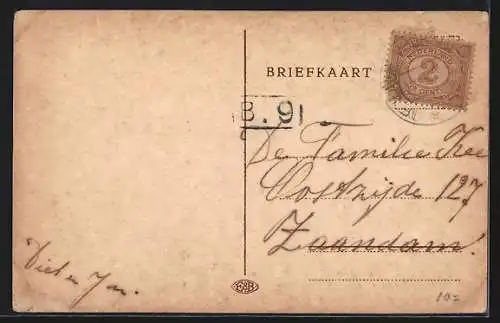 BRIEFKAART
NEDERLAND
2
CENT
B. 9
De Familie Kee
Oostzijde 127
Zaandam.
10=